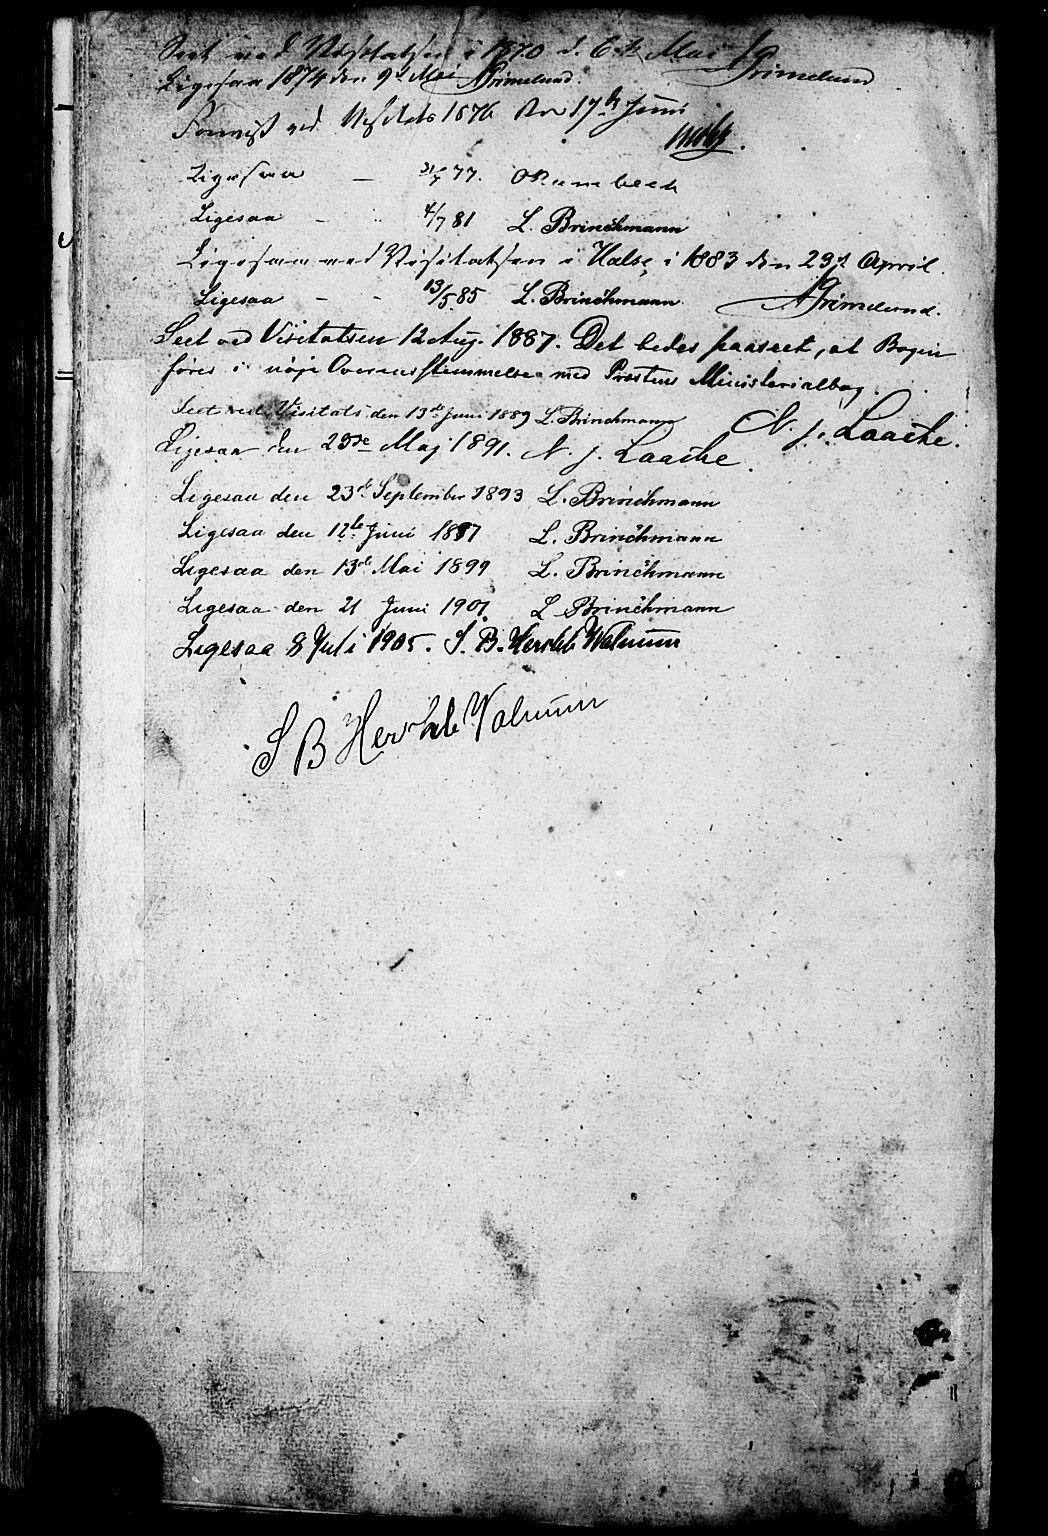 Seet ved Visitatsen i 1870 d. 6te Mai Grimelund
Ligesaa 1874 den 9d Mai Grimelund.
ved 1876 den 17de Juni
Ligesaa — 77.
Ligesaa – " 4/7 81 L. Brinchmann
Ligesaa ved Visitatsen i Halse i 1883 den 29d April.
Ligesaa – - 13/5 85 L. Brinchmann. Grimelund.
Seet ved Visitatsen 12 Aug. 1887. Det bedes paaseet, at Bogen
føres i nøje Overensstemmelse med Præstens Ministerialbog.
N. J. Laache.
Seet ved Visitats den 13de Juni 1889 L. Brinchmann
Ligesaa den 23de Maj 1891. N. J. Laache.
Ligesaa den 23de September 1893 L. Brinchmann
Ligesaa den 12te Juni 1897 L. Brinchmann
Ligesaa den 13de Mai 1899 L. Brinchmann
Ligesaa den 21 Juni 1901 L Brinchmann
Ligesaa 8 Juli 1905. S. B. Hersleb Walnum
S B Hersleb Walnum